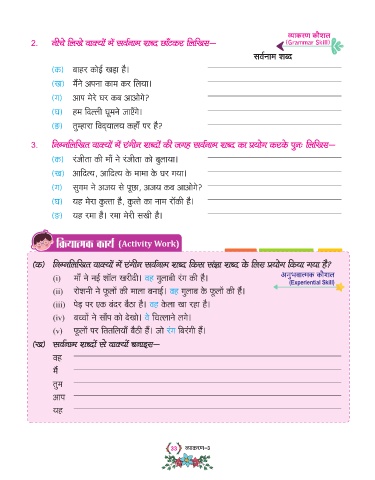 व्याकरण कौशल
(Grammar Skill)
2. नीचे लिखे वाक्यों में सर्वनाम शब्द छाँटकर लिखिए–
सर्वनाम शब्द
(क) बाहर कोई खड़ा है।
(ख) मैंने अपना काम कर लिया।
(ग) आप मेरे घर कब आओगे?
(घ) हम दिल्ली घूमने जाएँगे।
(ङ) तुम्हारा विद्यालय कहाँ पर है?
3. निम्नलिखित वाक्यों में रंगीन शब्दों की जगह सर्वनाम शब्द का प्रयोग करके पुनः लिखिए–
(क) रंजीता की माँ ने रंजीता को बुलाया।
(ख) आदित्य, आदित्य के मामा के घर गया।
(ग) सुगम ने अजय से पूछा, अजय कब आओगे?
(घ) यह मेरा कुत्ता है, कुत्ते का नाम रॉकी है।
(ङ) यह रमा है। रमा मेरी सखी है।
क्रियात्मक कार्य (Activity Work)
(क) निम्नलिखित वाक्यों में रंगीन सर्वनाम शब्द किस संज्ञा शब्द के लिए प्रयोग किया गया है?
अनुभवात्मक कौशल
(Experiential Skill)
(i) माँ ने नई शॉल खरीदी। वह गुलाबी रंग की है।
(ii) रोशनी ने फूलों की माला बनाई। वह गुलाब के फूलों की हैं।
(iii) पेड़ पर एक बंदर बैठा है। वह केला खा रहा है।
(iv) बच्चों ने साँप को देखो। वे चिल्लाने लगे।
(v) फूलों पर तितलियाँ बैठी हैं। जो रंग बिरंगी हैं।
(ख) सर्वनाम शब्दों से वाक्यों बनाइए–
वह
मैं
तुम
आप
यह
33 व्याकरण-3